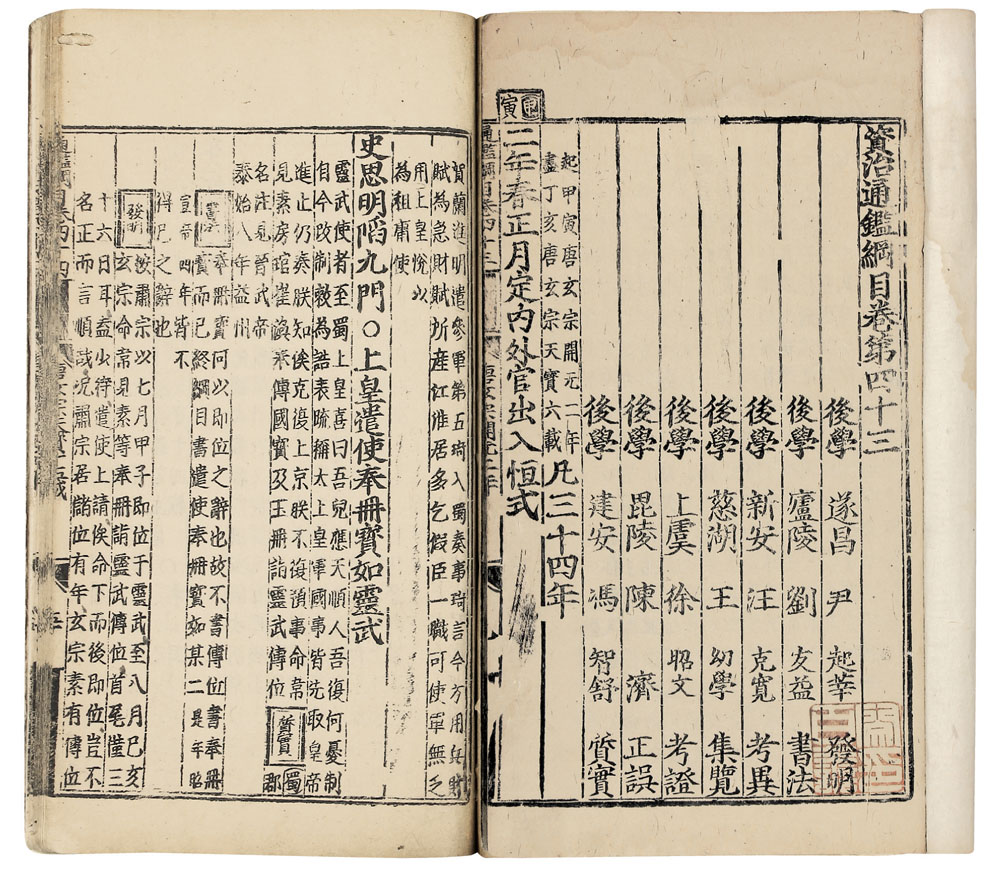 資治通鑑綱目卷第四十三
後學 遂昌 尹 起莘 發明
後學 廬陵 劉 友益 書法
後學 新安 汪 克寬 考異
後學 慈湖 王 幼學 集覽
後學 上虞 徐 昭文 考證
後學 毘陵 陳 濟 正誤
後學 建安 馮 智舒 質實
起甲寅唐玄宗開元二年
盡丁亥唐玄宗天寶六載
凡三十四年
寅
二年春正月定內外官出入恒式
通鑑綱目卷四十三
賀蘭進明遣參軍第五琦入蜀奏事琦言今方用兵財
賦為急財賦所產江淮居多乞假臣一職可使軍無乏
用上皇悅以
為租庸使
史思明陷九門○上皇遣使奉冊寶如靈武
靈武使者至蜀上皇喜曰吾兒應天順人吾復何憂制
自今改制敕為誥表疏稱太上皇軍國事皆先取皇帝
進止仍奏朕知俟克復上京朕不復預事命韋
見素房琯崔渙奉傳國寶及玉冊詣靈武傳位
質實 蜀郡
名注見晉武帝
泰始八年益州
書法 奉冊寶何以即位之辭也故不書傳位書奉冊
寶而已終綱目書遣使奉冊寶如某二 是年昭
宣帝四年皆不
得已之辭也
發明 按肅宗以七月甲子即位于靈武至八月己亥
玄宗命韋見素等奉冊詣靈武傳位首尾僅三
十六日耳盍少待遣使上請俟命下而後即位豈不
名正而言順哉況肅宗居儲位有年玄宗素有傳位